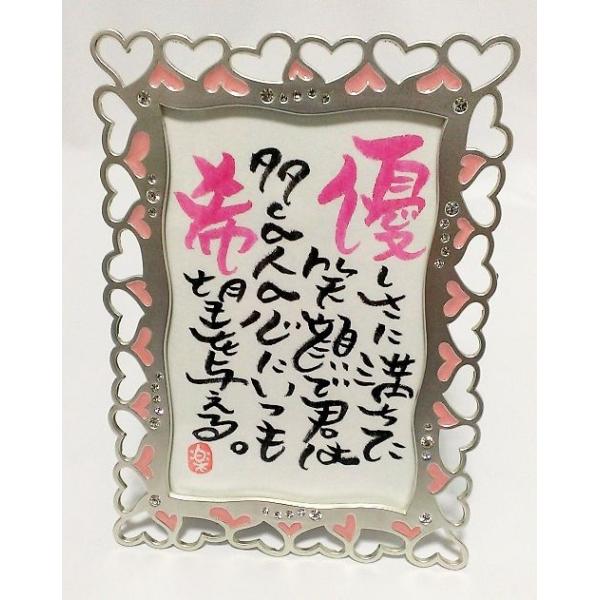 優しさに満ちた
笑顔で君は
多くの人の心にいつも
希望を与える。
楽